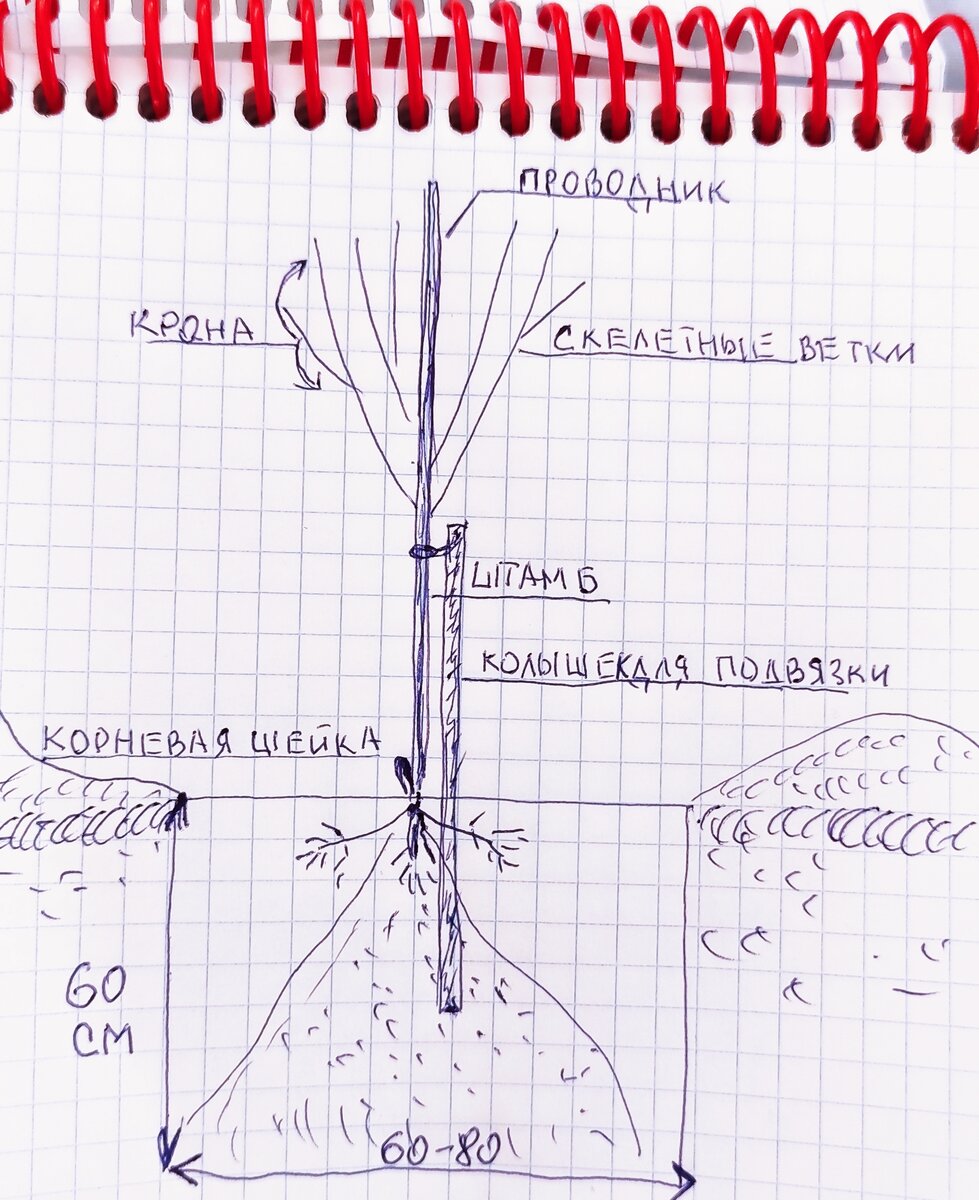 ПРОВОДНИК
КРОНА
СКЕЛЕТНЫЕ ВЕТКИ
ШТАМБ
КОЛЫШЕК ДЛЯ ПОДВЯЗКИ
КОРНЕВАЯ ШЕЙКА
60
СМ
60-80